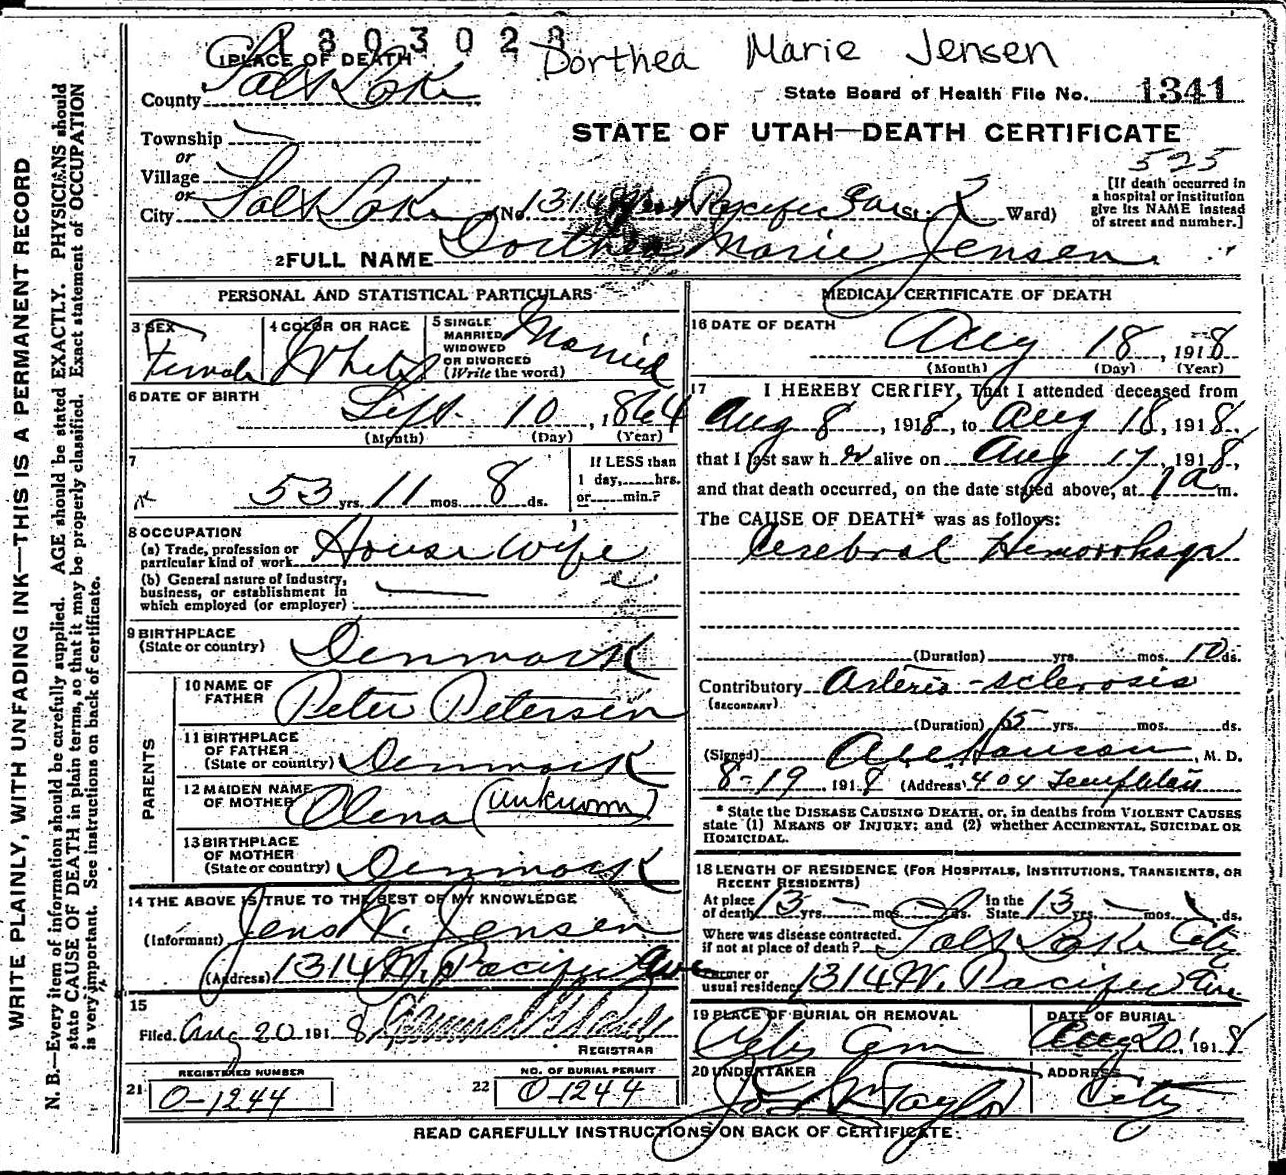 1803028
Dorthea Marie Jensen
1 PLACE OF DEATH
County Salt Lake
State Board of Health File No. 1341
STATE OF UTAH—DEATH CERTIFICATE
525
Township
or
Village
or
City Salt Lake (No. 1314 W Pacific Ave St. 2 Ward)
[If death occurred in
a hospital or institution
give its NAME instead
of street and number.]
2 FULL NAME Dorthea Marie Jensen.
PERSONAL AND STATISTICAL PARTICULARS
3 SEX Female
4 COLOR OR RACE White
5 SINGLE
MARRIED
WIDOWED
OR DIVORCED
(Write the word) Married
6 DATE OF BIRTH
Sept. 10, 1864
(Month) (Day) (Year)
7
53 yrs. 11 mos. 8 ds.
If LESS than
1 day, hrs.
or min.?
8 OCCUPATION
(a) Trade, profession or
particular kind of work House wife
(b) General nature of industry,
business, or establishment in
which employed (or employer)
9 BIRTHPLACE
(State or country) Denmark
PARENTS
10 NAME OF
FATHER Peter Petersen
11 BIRTHPLACE
OF FATHER
(State or country) Denmark
12 MAIDEN NAME
OF MOTHER Olena (unknown)
13 BIRTHPLACE
OF MOTHER
(State or country) Denmark
14 THE ABOVE IS TRUE TO THE BEST OF MY KNOWLEDGE
(Informant) Jens V. Jensen
(Address) 1314 W. Pacific Ave
15
Filed Aug 20 1918
REGISTRAR
21 REGISTERED NUMBER
0-1244
22 NO. OF BURIAL PERMIT
0-1244
MEDICAL CERTIFICATE OF DEATH
16 DATE OF DEATH
Aug 18, 1918
(Month) (Day) (Year)
17 I HEREBY CERTIFY, That I attended deceased from
Aug 8, 1918, to Aug 18, 1918,
that I last saw her alive on Aug 17, 1918,
and that death occurred, on the date stated above, at 1 a m.
The CAUSE OF DEATH* was as follows:
Cerebral Hemorrhage
(Duration) yrs. mos. 10 ds.
Contributory Arterio-sclerosis
(SECONDARY)
(Duration) 15 yrs. mos. ds.
(Signed) M. D.
8-19 1918 (Address) 404 Templeton
* State the DISEASE CAUSING DEATH, or, in deaths from VIOLENT CAUSES
state (1) MEANS OF INJURY; and (2) whether ACCIDENTAL, SUICIDAL OR
HOMICIDAL.
18 LENGTH OF RESIDENCE (FOR HOSPITALS, INSTITUTIONS, TRANSIENTS, OR
RECENT RESIDENTS)
At place
of death 13 yrs. — mos. ds. In the
State 13 yrs. — mos. ds.
Where was disease contracted,
if not at place of death? Salt Lake City
Former or
usual residence 1314 W. Pacific Ave
19 PLACE OF BURIAL OR REMOVAL
City Cem
DATE OF BURIAL
Aug 20, 1918
20 UNDERTAKER
Taylor
ADDRESS
City
READ CAREFULLY INSTRUCTIONS ON BACK OF CERTIFICATE.
WRITE PLAINLY, WITH UNFADING INK—THIS IS A PERMANENT RECORD
N. B.—Every item of information should be carefully supplied. AGE should be stated EXACTLY. PHYSICIANS should
state CAUSE OF DEATH in plain terms, so that it may be properly classified. Exact statement of OCCUPATION
is very important. See instructions on back of certificate.